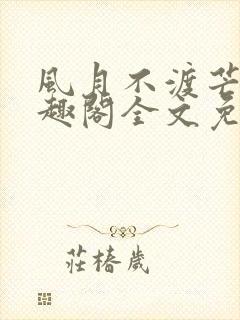 風月不渡芒
趣閣全文免
莊椿歲